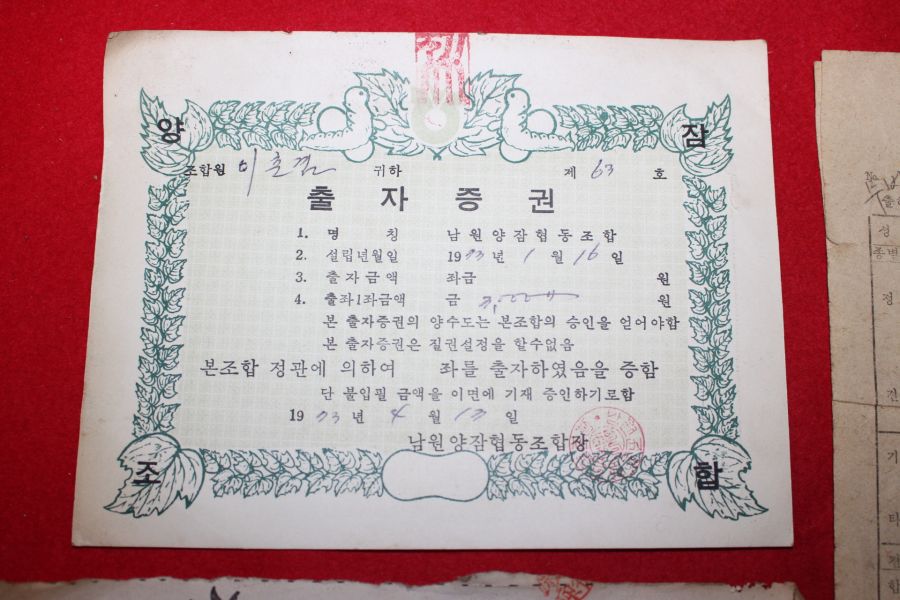 양 잠
조합원 이 귀하 제 63 호
출 자 증 권
1. 명 칭 남원양잠협동조합
2. 설립년월일 1973년 1월 16일
3. 출자금액 좌금 원
4. 출좌1좌금액 금 원
본 출자증권의 양수도는 본조합의 승인을 얻어야함
본 출자증권은 질권설정을 할수없음
본조합 정관에 의하여 좌를 출자하였음을 증함
단 불입필 금액을 이면에 기재 증인하기로함
1973년 4월 13일
남원양잠협동조합장
조 합
성
종별
정
견
기